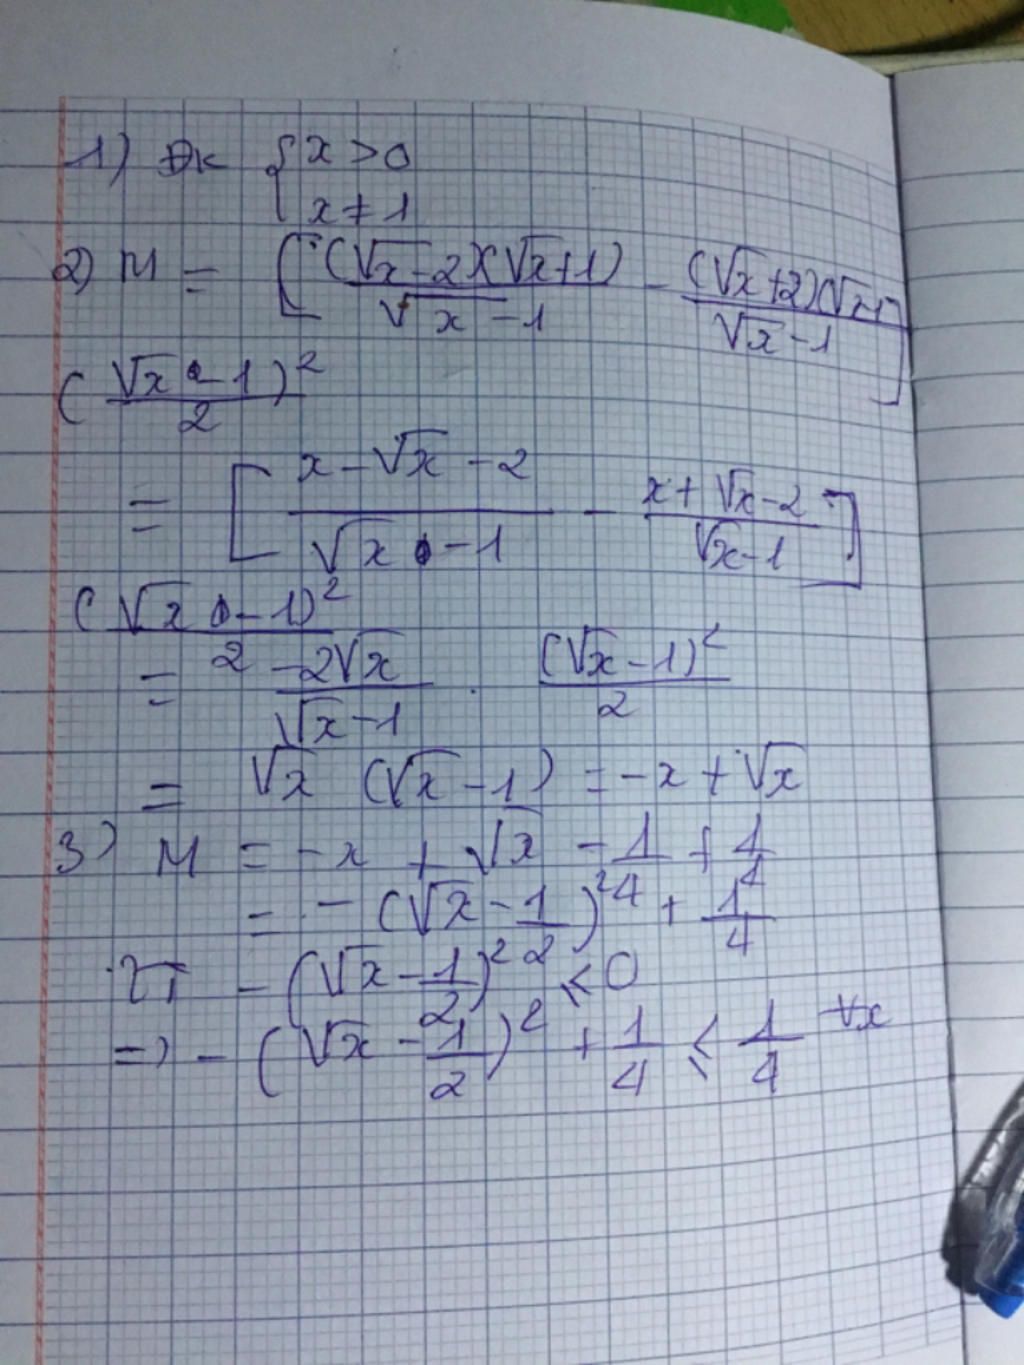 1) ĐK { x > 0
x ≠ 1
2) M = [ (√x - 2)(√x + 1) / √x - 1 - (√x + 2)(√x - 1) / √x - 1 ]
( √x - 1 / 2 )²
= [ x - √x - 2 / √x - 1 - x + √x - 2 / √x - 1 ]
( √x - 1)² / 2
= -2√x / √x - 1 . (√x - 1)² / 2
= √x (√x - 1) = -x + √x
3) M = -x + √x - 1/4 + 1/4
= - (√x - 1/2)² + 1/4
- (√x - 1/2)² ≤ 0
=> - (√x - 1/2)² + 1/4 ≤ 1/4 ∀x